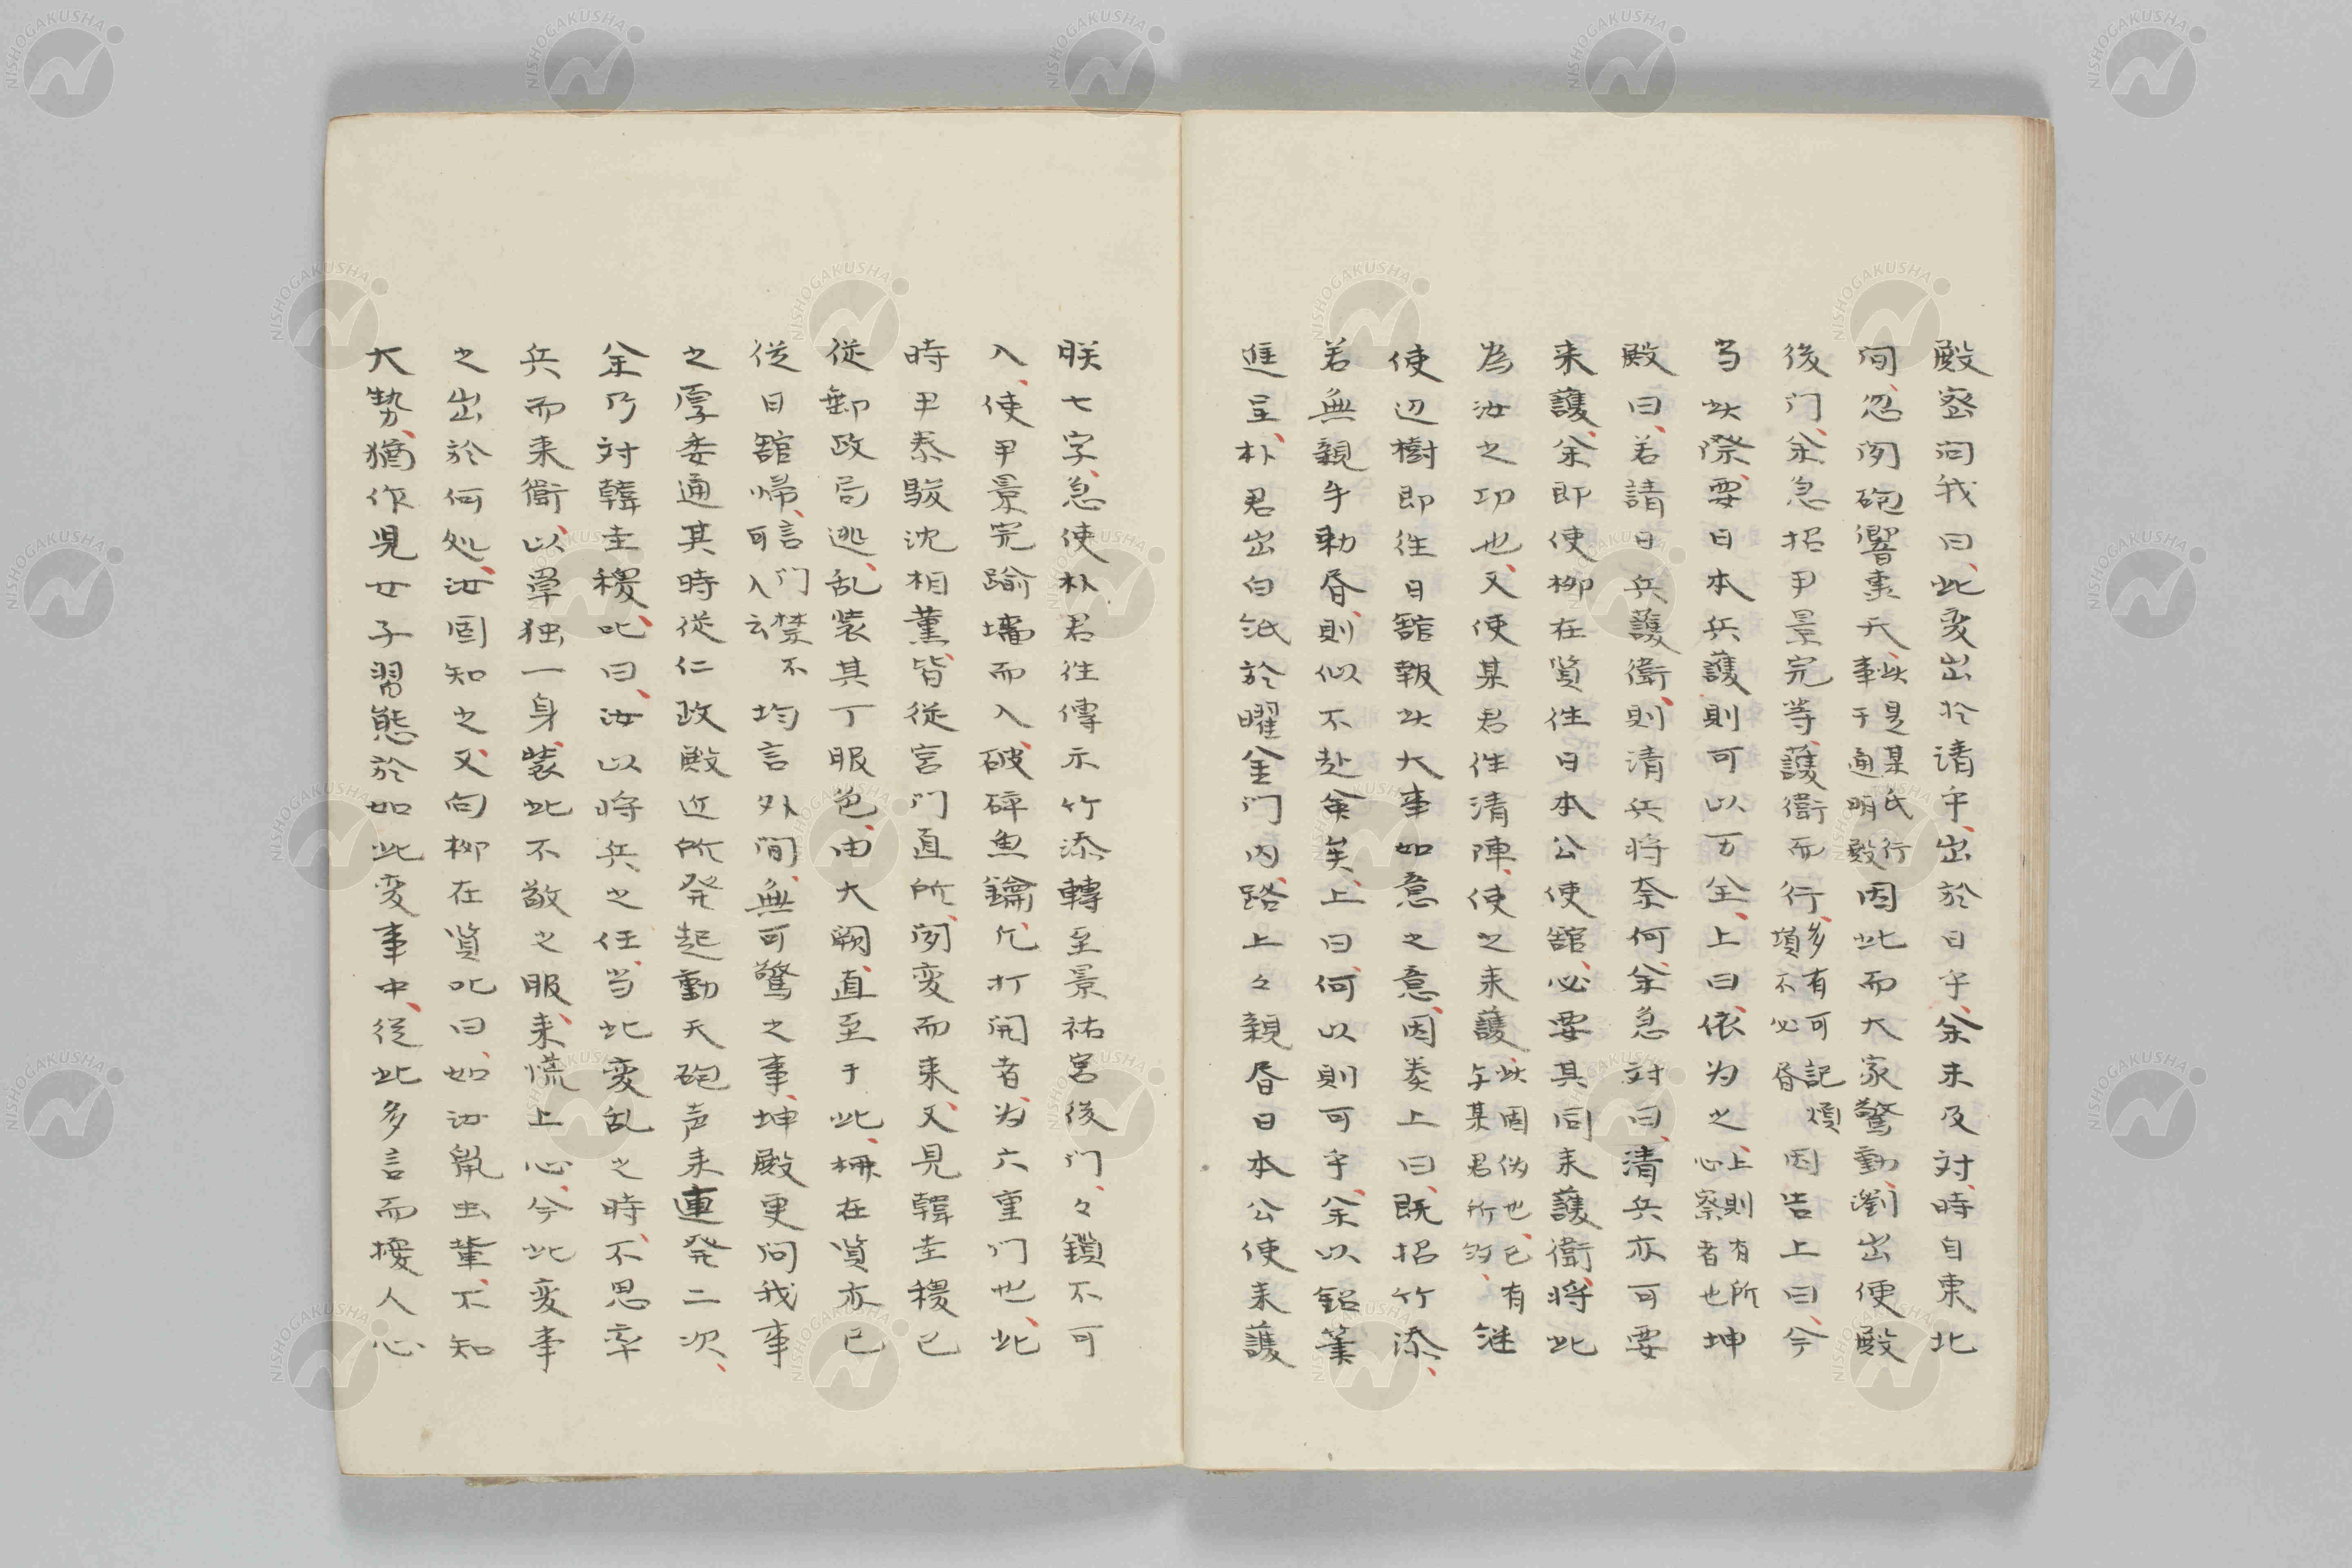 殿密问我曰、此変出於清乎、出於日乎、余未及対、時自東北
间、忽闵砲響衝天、此是某氏行事于通明殿因此而大家驚動、瀏出便殿
後门、余急招尹景完等、護衛而行、多有可記煩不必書因告上曰、今
当此際、要日本兵護、則可以万全、上曰、依為之、上則有所心察者也坤
殿曰、若請日兵護衛、則清兵将奈何、余急対曰、清兵亦可要
来護、余即使柳在賢往日本公使舘、必要其同来護衛、将此
為汝之功也、又使某君往清陣、使之来護、此固偽也、已有与某君所約、継
使辺樹即往日舘報此大事如意之意、因奏上曰、既招竹添、
若無親手勅書、則似不赴矣、上曰、何以則可乎、余以鉛筆
進呈、朴君出白紙、於曜金门内路、上々親書日本公使来護
朕七字、急使朴君往傳示竹添、轉至景祐宮後门、々鎖不可
入、使尹景完踰墻而入、破碎魚鑰、凡打開者、為六重门也、此
時尹泰駿沈相薫、皆従宮门直所、闵変而来、又見韓圭稷已
従郵政局逃乱、装其丁服色、由大闕、直至于此、柳在賢亦已
従日舘帰、言门禁不可入云均言外间、無可驚之事、坤殿更问我事
之厚委通其時従仁政殿近所発起動天砲声来連発二次、
余乃対韓圭稷、叱曰、汝以将兵之任、当此変乱之時、不思率
兵而来衛、以単独一身、装此不敬之服来、慌上心、今此変事
之出於何処、汝固知之、又向柳在賢叱曰、如汝鼠虫輩、不知
大勢、猶作児女子習態於如此変事中、従此多言而擾人心